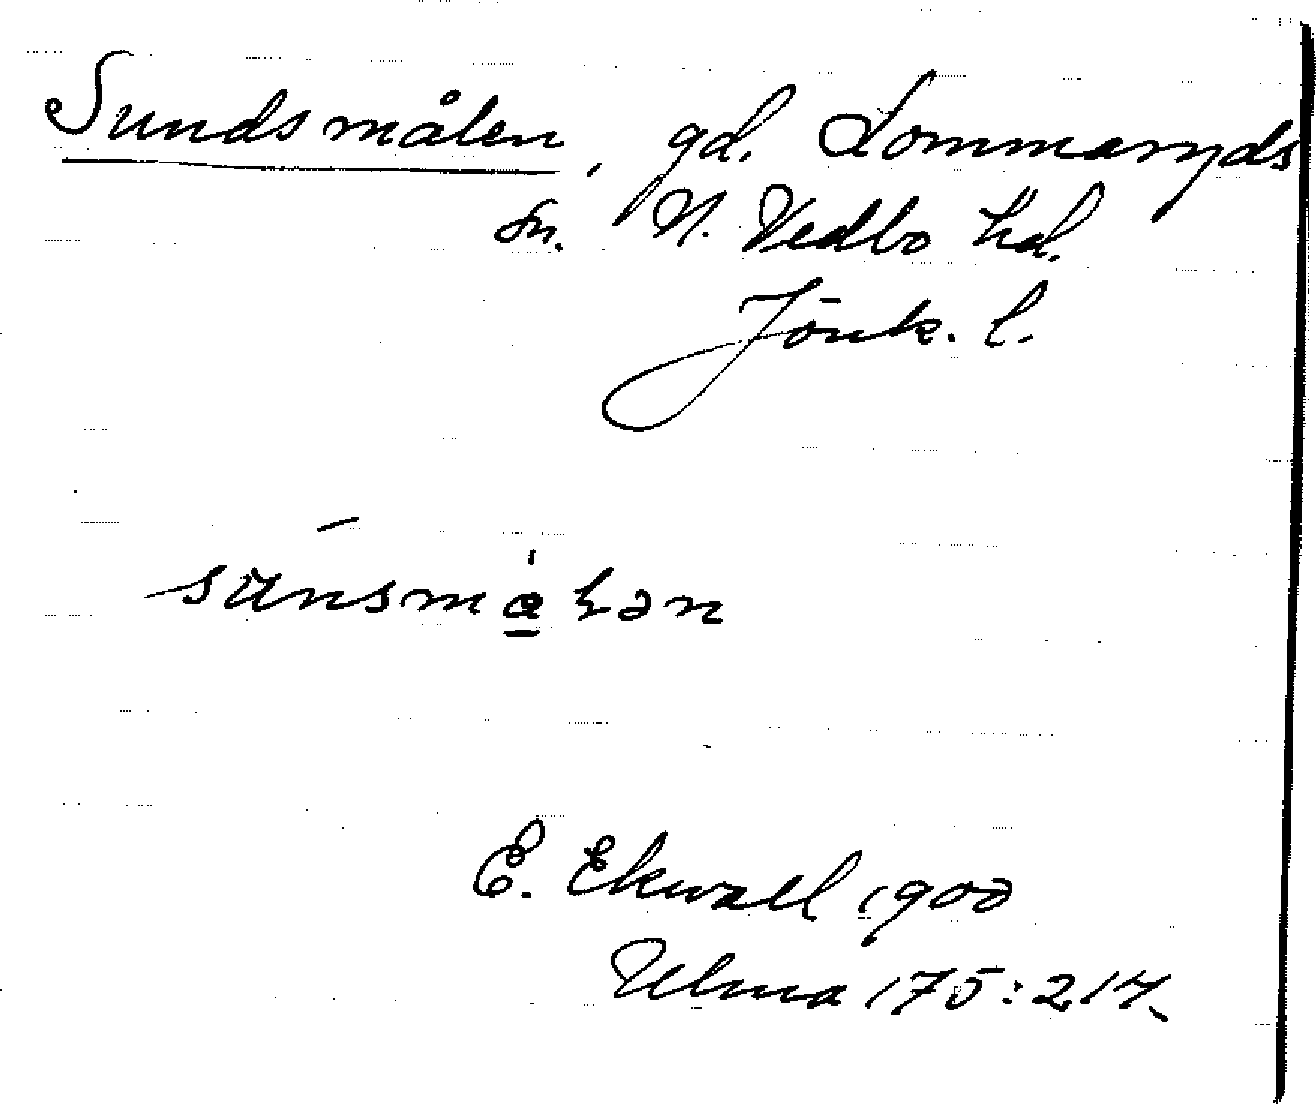 Sundsmålen, gd. Lommaryds
sn. N. Vedbo hd.
Jönk. l.
E. Ekwall 1900
Ulma 175:217.